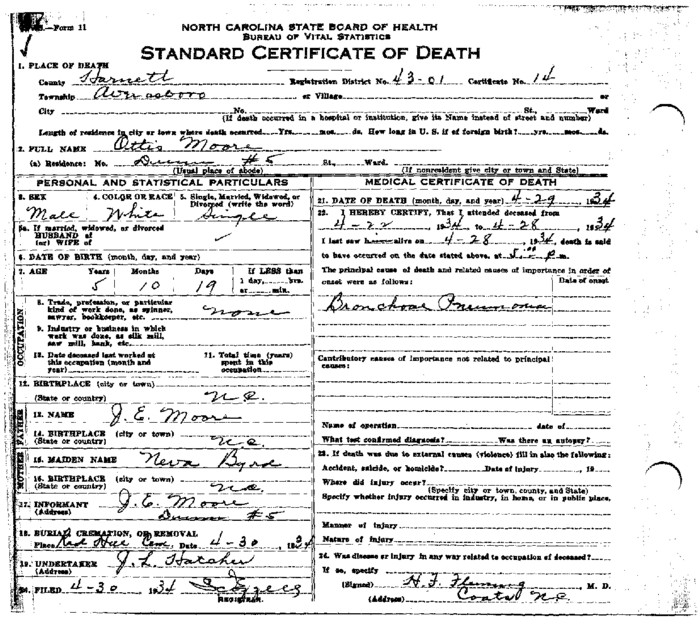 —Form 11
NORTH CAROLINA STATE BOARD OF HEALTH
BUREAU OF VITAL STATISTICS
STANDARD CERTIFICATE OF DEATH
1. PLACE OF DEATH
County Harnett Registration District No. 43-01 Certificate No. 14
Township Averasboro or Village or
City No. St., Ward
(If death occurred in a hospital or institution, give its Name instead of street and number)
Length of residence in city or town where death occurred Yrs. mos. ds. How long in U. S. if of foreign birth? yrs. mos. ds.
2. FULL NAME Ottis Moore
(a) Residence: No. Dunn #5 St., Ward.
(Usual place of abode) (If nonresident give city or town and State)
PERSONAL AND STATISTICAL PARTICULARS
3. SEX 4. COLOR OR RACE 5. Single, Married, Widowed, or Divorced (write the word)
Male White Single
5a. If married, widowed, or divorced
HUSBAND of
(or) WIFE of
6. DATE OF BIRTH (month, day, and year)
7. AGE Years Months Days If LESS than
1 day, hrs.
5 10 19 or min.
OCCUPATION
8. Trade, profession, or particular
kind of work done, as spinner,
sawyer, bookkeeper, etc. none
9. Industry or business in which
work was done, as silk mill,
saw mill, bank, etc.
10. Date deceased last worked at
this occupation (month and
year)
11. Total time (years)
spent in this
occupation
12. BIRTHPLACE (city or town)
(State or country) N.C.
FATHER
13. NAME J. E. Moore
14. BIRTHPLACE (city or town)
(State or country) N.C.
MOTHER
15. MAIDEN NAME Neva Byrd
16. BIRTHPLACE (city or town)
(State or country) N.C.
17. INFORMANT J. E. Moore
(Address) Dunn #5
18. BURIAL, CREMATION, OR REMOVAL
Place Cem. Date 4-30, 1934
19. UNDERTAKER J. L. Hatcher
(Address)
20. FILED 4-30 1934
REGISTRAR.
MEDICAL CERTIFICATE OF DEATH
21. DATE OF DEATH (month, day, and year) 4-29, 1934
22. I HEREBY CERTIFY, That I attended deceased from
4-22, 1934 to 4-28, 1934
I last saw h alive on 4-28, 1934, death is said
to have occurred on the date stated above, at 5:00 p.m.
The principal cause of death and related causes of importance in order of
onset were as follows: Date of onset
Pneumonia
Contributory causes of importance not related to principal
cause:
Name of operation date of
What test confirmed diagnosis? Was there an autopsy?
23. If death was due to external causes (violence) fill in also the following:
Accident, suicide, or homicide? Date of injury, 19
Where did injury occur?
(Specify city or town, county, and State)
Specify whether injury occurred in industry, in home, or in public place.
Manner of injury
Nature of injury
24. Was disease or injury in any way related to occupation of deceased?
If so, specify
(Signed) H. F. Fleming, M. D.
(Address) Coats N.C.